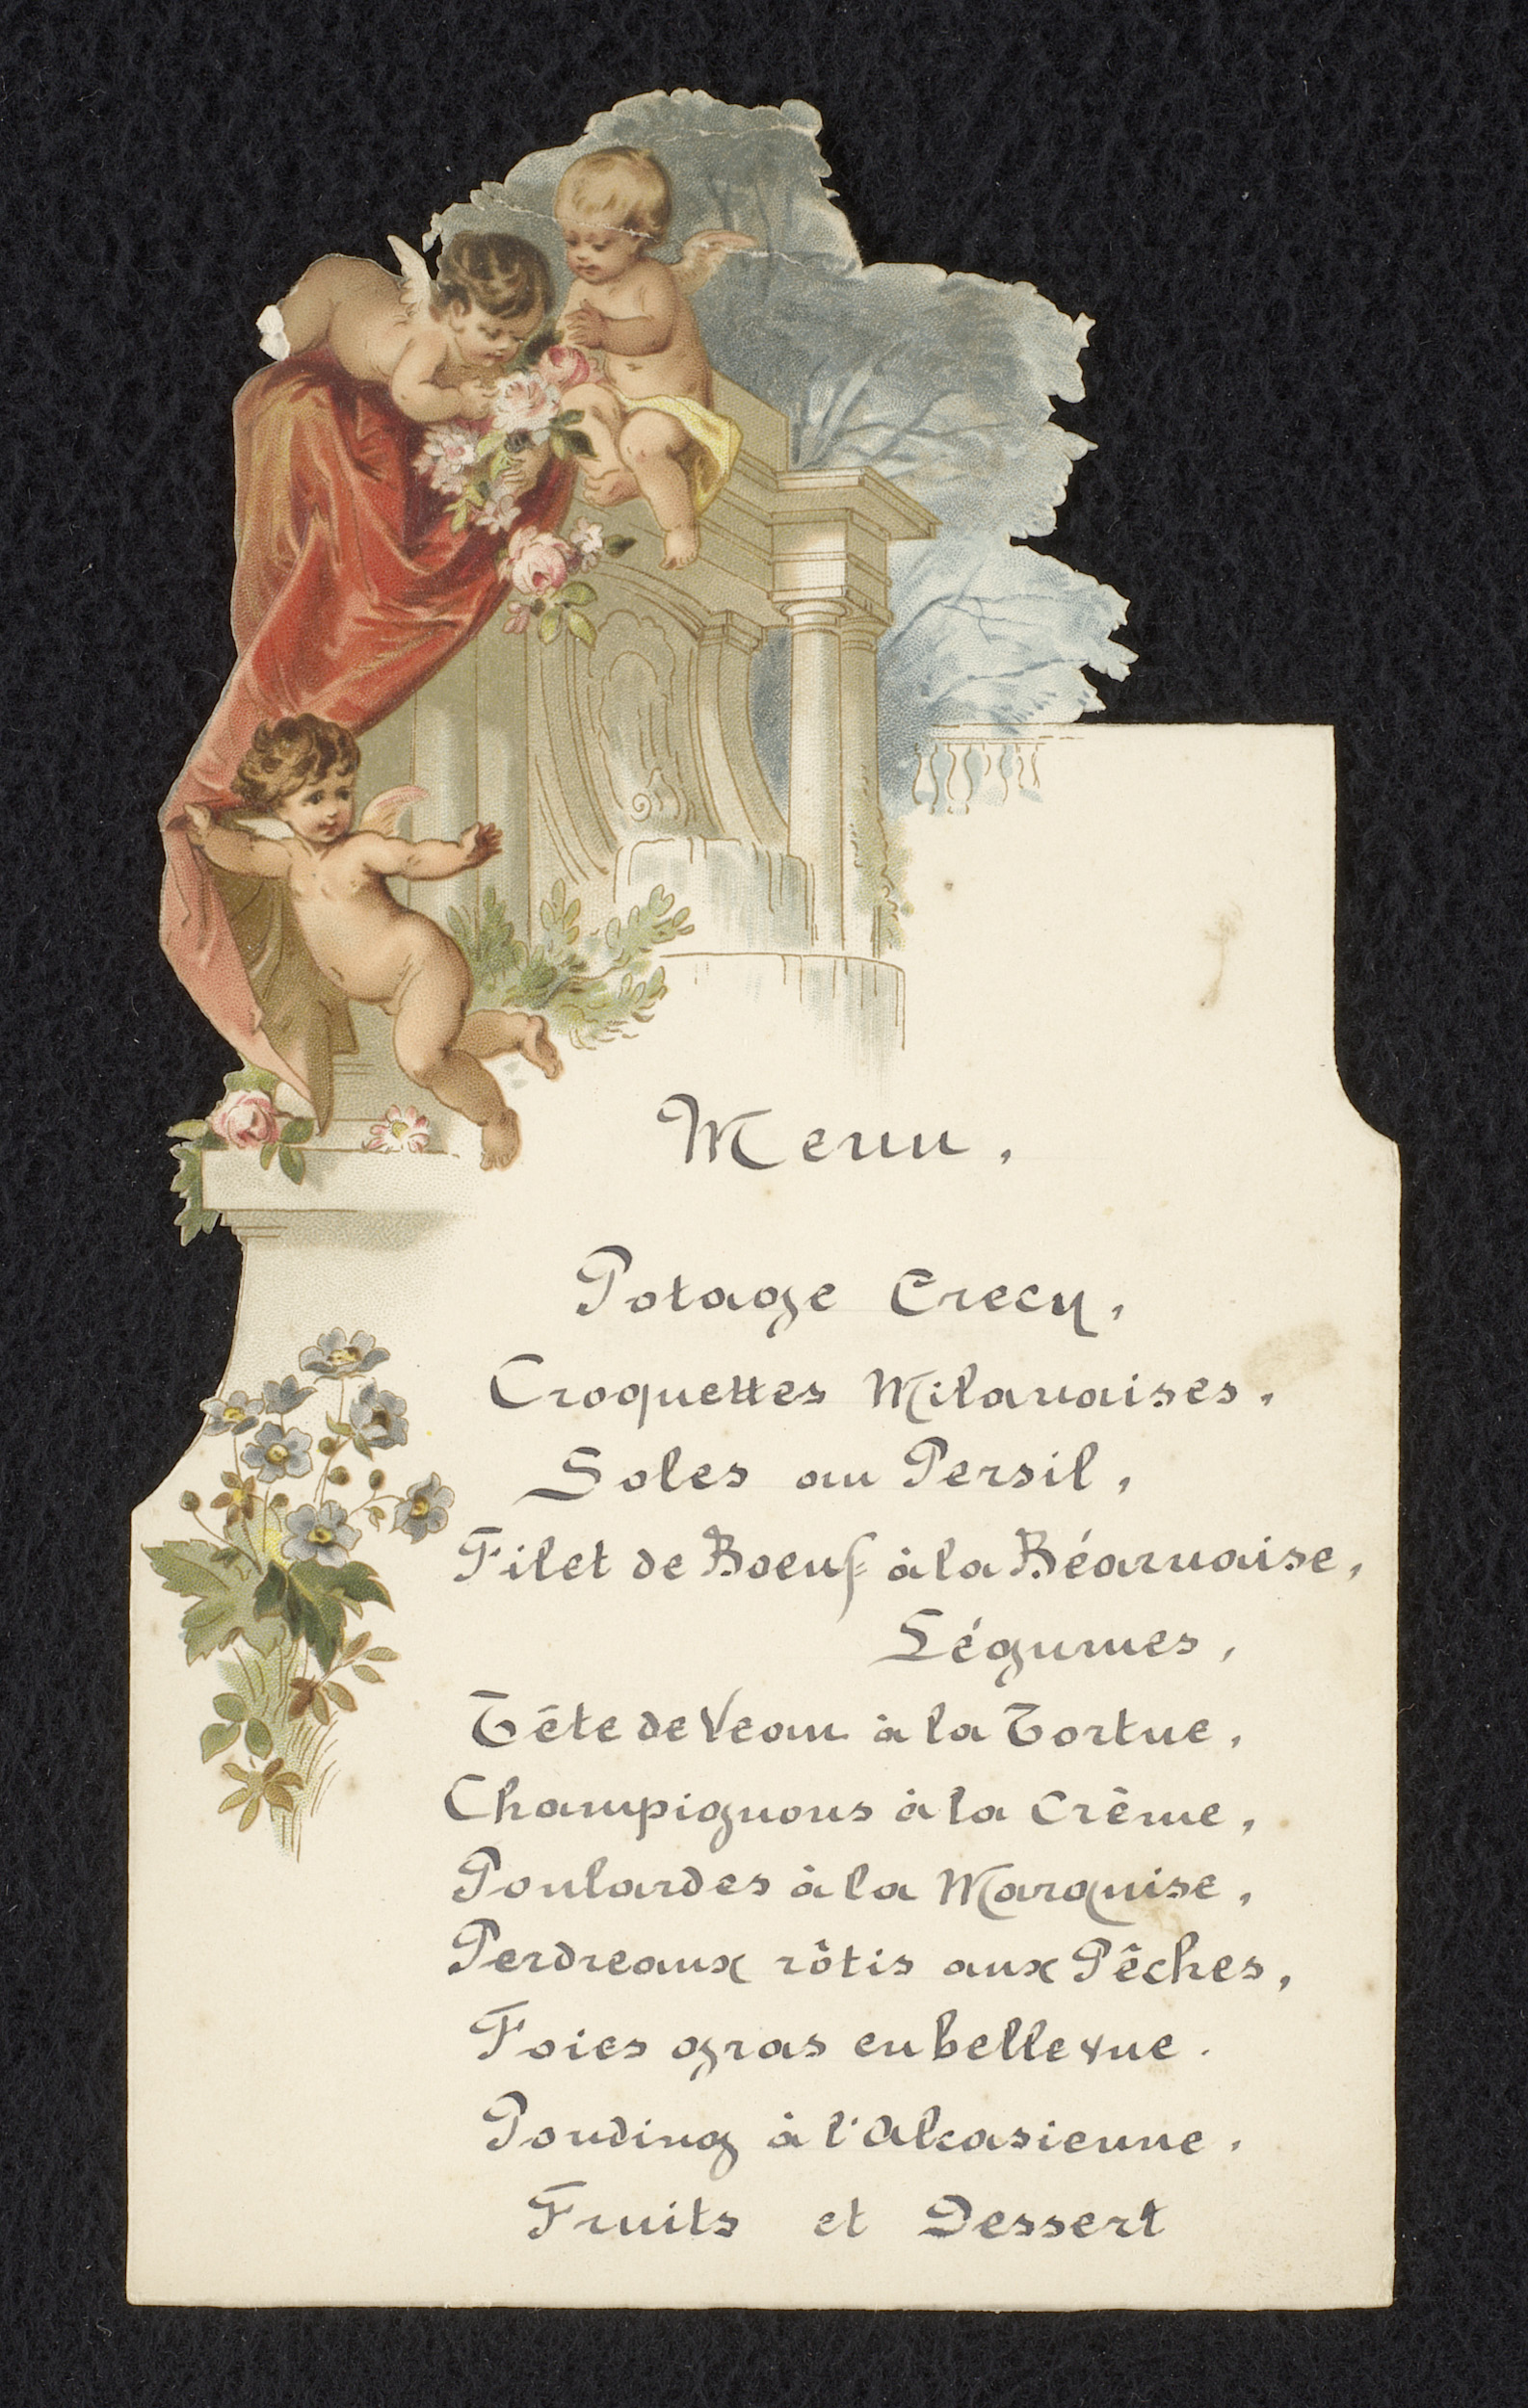 Menu.
Potage Crecy,
Croquettes Milanaises.
Soles au Persil,
Filet de Boeuf à la Béarnaise,
Légumes,
Tête de Veau à la Tortue,
Champignons à la Crême,
Poulardes à la Marquise,
Perdreaux rôtis aux Pêches,
Foies gras en bellevue.
Pouding à l'Alsasienne.
Fruits et Dessert